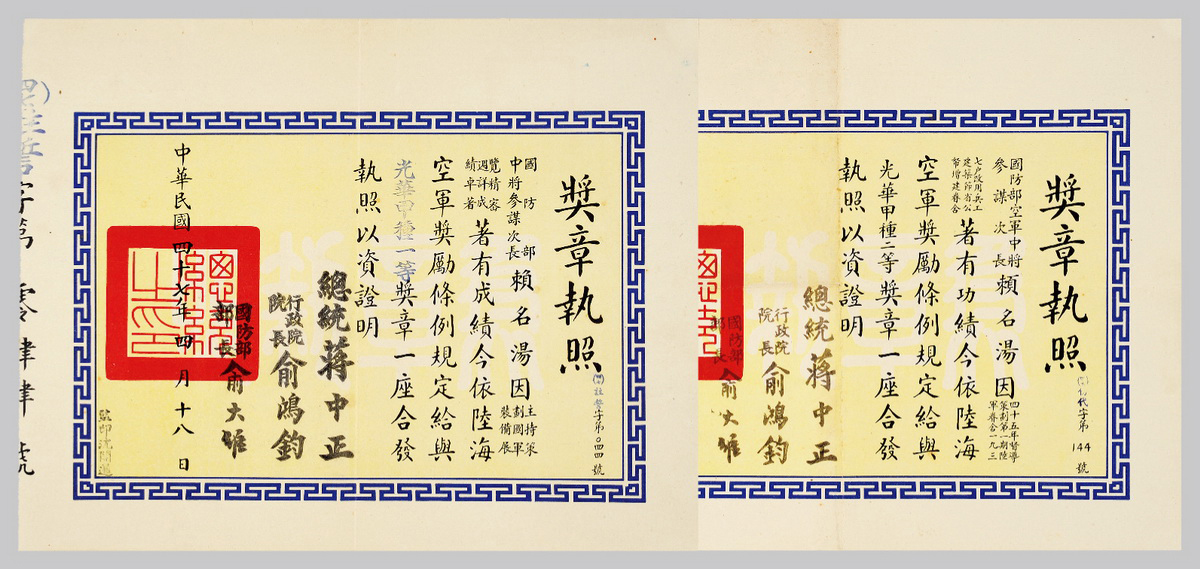 獎章執照
字第〇四四號
國防部
中將參謀次長
賴名湯因
主持策
劃國軍
裝備展
覽精審
週詳成
績卓著
著有成績今依陸海
空軍獎勵條例規定給與
光華甲種一等獎章一座合發
執照以資證明
總統蔣中正
行政院
院長俞鴻鈞
國防部
部長俞大維
中華民國四十七年四月十八日
字第零肆肆號
獎章執照
代字第144號
國防部空軍中將
參謀次長
賴名湯因
四十五年督導
策劃第一期陸
軍眷舍一九三
七戶改用兵工
建築節省公
帑增建眷舍
著有功績今依陸海
空軍獎勵條例規定給與
光華甲種二等獎章一座合發
執照以資證明
總統蔣中正
行政院
院長俞鴻鈞
國防部
部長俞大維